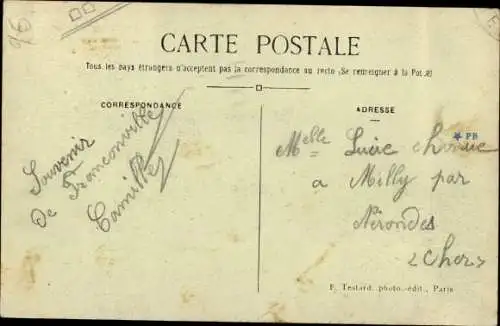 95
CARTE POSTALE
Tous les pays étrangers n'acceptent pas la correspondance au recto (Se renseigner à la Poste)
CORRESPONDANCE
ADRESSE
Souvenir
de Franconville
Camille
PB
Melle Lucie
a Milly par
Nérondes
(Cher)
F. Testard. photo.-édit., Paris